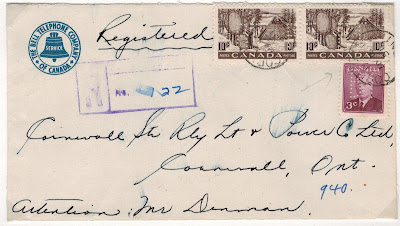 THE BELL TELEPHONE COMPANY OF CANADA
SERVICE
Registered
10¢ 10¢ 10¢ 10¢
CANADA CANADA
CANADA
3¢ 3¢
No. 22
Cornwall St Rly Lt & Power Co Ltd,
Cornwall, Ont.
940.
Attention: Mr Denman.